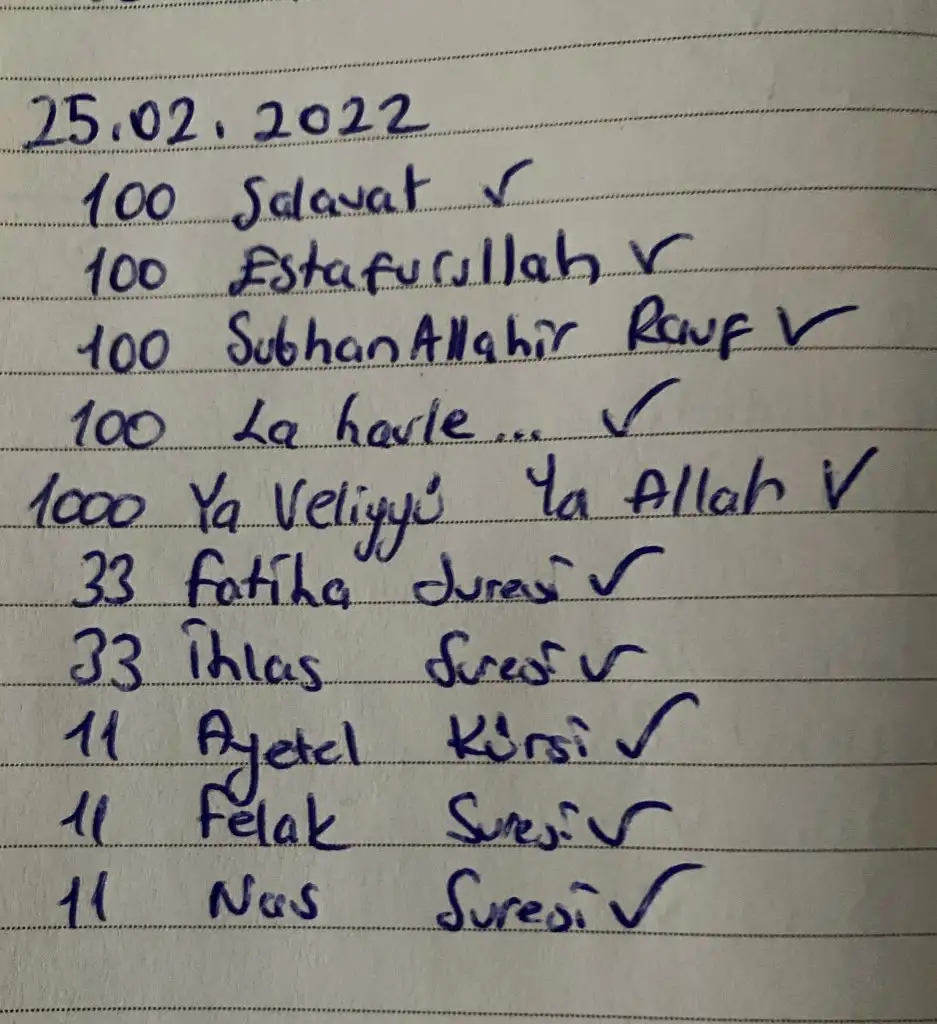 25.02.2022
100 Salavat ✓
100 Estafurullah ✓
100 SubhanAllahir Rauf ✓
100 La havle... ✓
1000 Ya Veliyyü Ya Allah ✓
33 Fatiha Suresi ✓
33 İhlas Suresi ✓
11 Ayetel Kürsi ✓
11 Felak Suresi ✓
11 Nas Suresi ✓